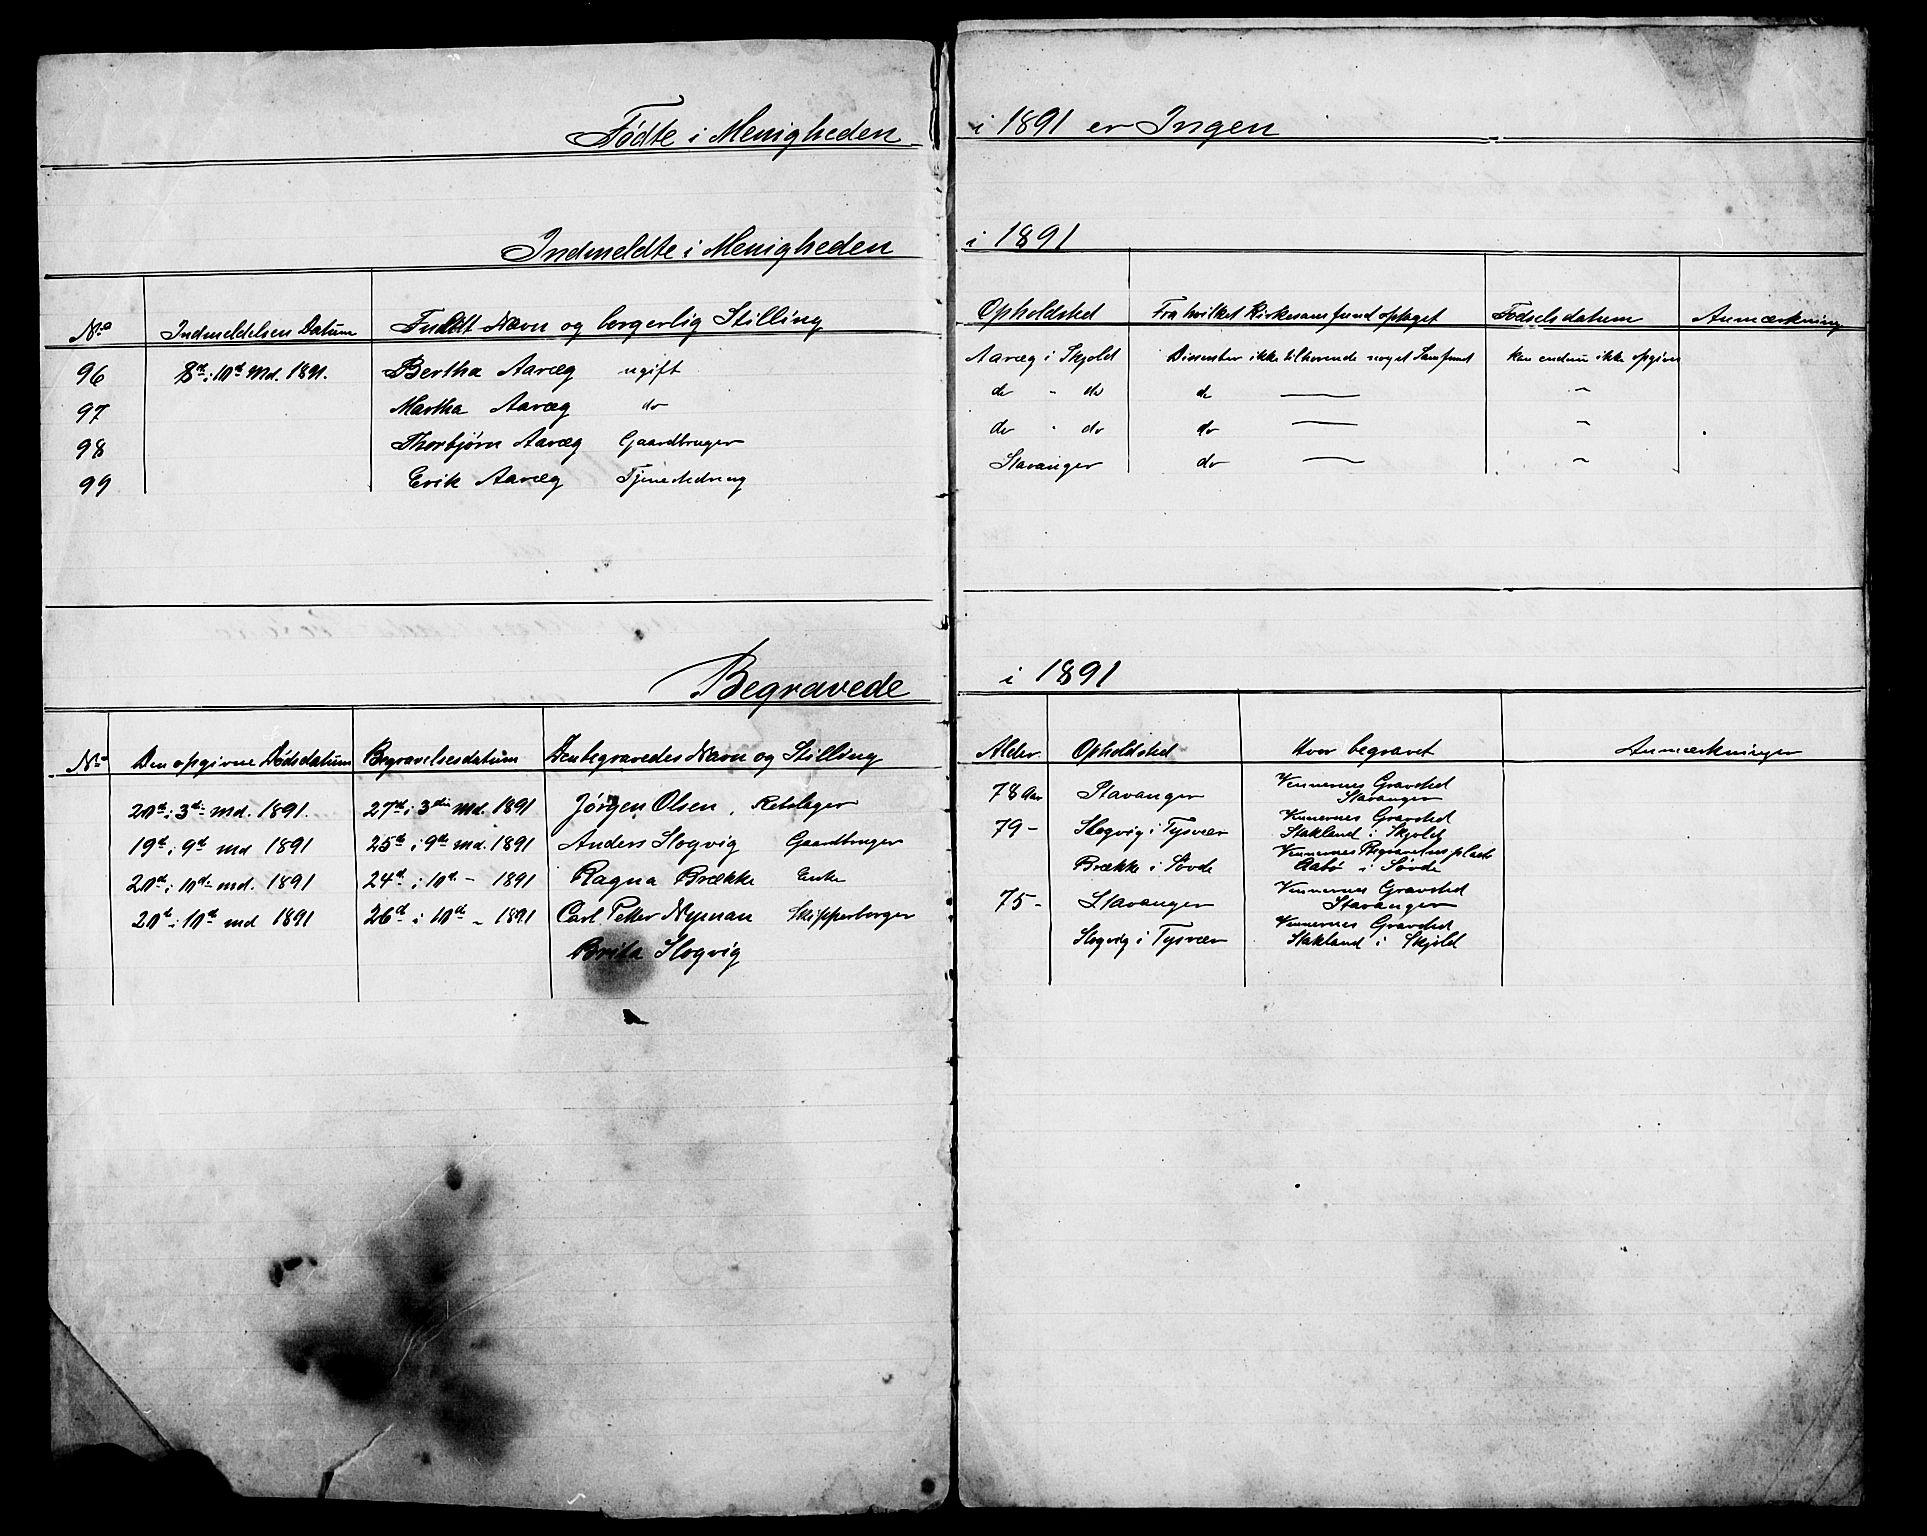 Fødte i Menigheden i 1891 er Ingen
Indmeldte i Menigheden i 1891
No Indmeldelsen Datum Fuldt Navn og borgerlig Stilling Opholdsted Fra hvilket Kirkesamfund optaget Fødselsdatum Anmærkning
96 8de i 10de Md. 1891. Bertha Aaræg ugift Aaræg i Skjold Dissenter ikke tilhørende noget Samfund kan endnu ikke opgives
97 Martha Aaræg do do " do do — "
98 Thorbjørn Aaræg Gaardbruger do " do do — "
99 Erik Aaræg Stavanger do — "
Begravede i 1891
No Den opgivne Dødsdatum Begravelsesdatum Den begravedes Navn og Stilling Alder Opholdsted Hvor begravet Anmærkninger
20de i 3die md. 1891. 27de i 3die md. 1891 Jørgen Olsen, Rebslager 78 Aar Stavanger Vennernes Gravsted
Stavanger
19de i 9de md 1891 25de i 9de md. 1891 Anders Slogvig Gaardbruger 79 - Slogvig i Tysvær Vennernes Gravsted
Stakland i Skjold
20de i 10de md. 1891 24de i 10de - 1891 Ragna Brække Enke Brække i Søvde Vennernes Begravelsesplads
Aabø i Søvde
20de i 10de md 1891 26de i 10de - 1891 Carl Peter Nyman Skipperborger 75 - Stavanger Vennernes Gravsted
Stavanger
Brita Slogvig Slogvig i Tysvær Vennernes Gravsted
Stakland i Skjold